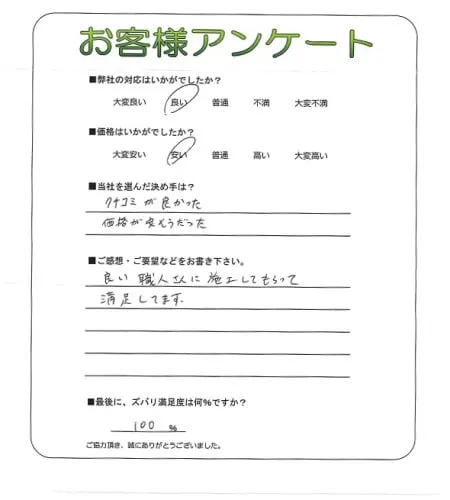 お客様アンケート
■弊社の対応はいかがでしたか？
大変良い 良い 普通 不満 大変不満
■価格はいかがでしたか？
大変安い 安い 普通 高い 大変高い
■当社を選んだ決め手は？
クチコミが良かった
価格が安そうだった
■ご感想・ご要望などをお書き下さい。
良い職人さんに施工してもらって
満足してます。
■最後に、ズバリ満足度は何％ですか？
100 %
ご協力頂き、誠にありがとうございました。